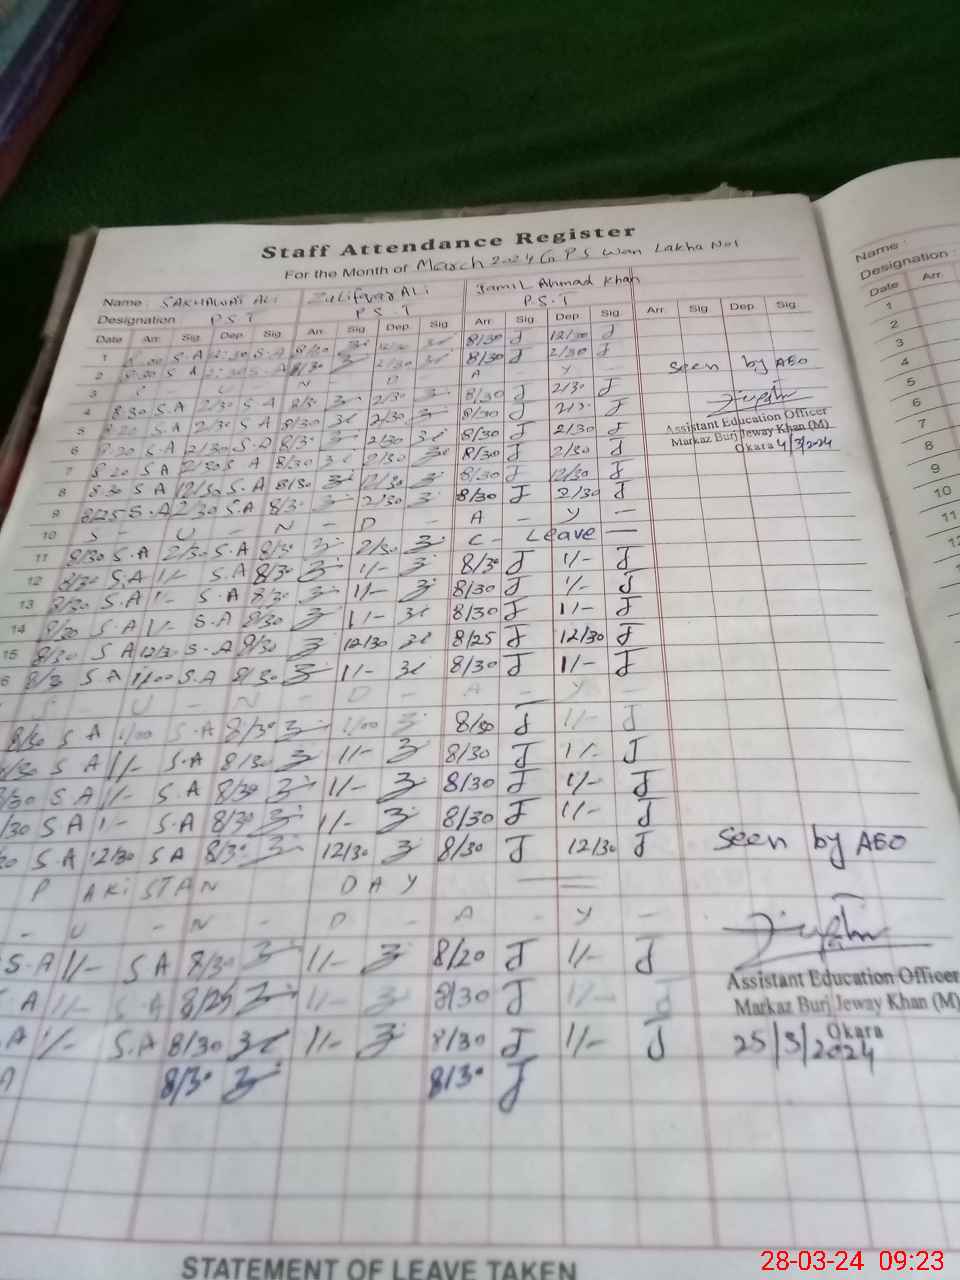 Staff Attendance Register
For the Month of March 2024 G P S Wan Lakha No1
Name : SAKHAWAT ALI Zulifqar ALi Jamil Ahmad Khan
Designation P.S.T P.S.T P.S.T
Date Arr. Sig. Dep. Sig. Arr. Sig. Dep. Sig. Arr. Sig. Dep. Sig. Arr. Sig. Dep. Sig.
1 S.A 12:30 S.A 8/30 8/30 J 12/30 J
2 8:30 S A 2:30 S.A 8/30 2/30 8/30 J 2/30 J
3 S U N - D - A - Y -
4 8:30 S.A 2/30 S.A 8/30 2/30 8/30 J 2/30 J
5 8:20 S.A 2/30 S A 8/30 2/30 8/30 J 2/30 J
6 8:20 S.A 2/30 S.A 8/30 2/30 8/30 J 2/30 J
7 8:20 S A 2/30 S A 8/30 2/30 8/30 J 2/30 J
8 8:30 S A 12/30 S.A 8/30 12/30 8/30 J 12/30 J
9 8/25 S.A 2/30 S.A 8/30 2/30 8/30 J 2/30 J
10 S - U - N - D - A - Y -
11 8/30 S.A 2/30 S.A 8/30 2/30 C - Leave -
12 8/30 S.A 1/- S.A 8/30 1/- 8/30 J 1/- J
13 8/30 S.A 1/- S.A 8/30 1/- 8/30 J 1/- J
14 8/30 S.A 1/- S.A 8/30 1/- 8/30 J 1/- J
15 8/30 S A 12/30 S.A 8/30 12/30 8/25 J 12/30 J
6 8/30 S A 1/00 S.A 8/30 1/- 8/30 J 1/- J
S - U - N - D - A - Y -
8/30 S A 1/00 S.A 8/30 1/00 J 1/- J
8/30 S A 1/- S.A 8/30 1/- 8/30 J 1/- J
8/30 S A 1/- S.A 8/30 1/- 8/30 J 1/- J
/30 S.A 1/- S.A 8/30 1/- 8/30 J 1/- J
30 S A 12/30 S A 8/30 12/30 8/30 J 12/30 J
P AKiSTAN DAY
- U - N - D - A - Y -
S.A 1/- S A 8/30 1/- 8/20 J 1/- J
. A 1/- S A 8/25 1/- 8/30 J 1/- J
A 1/- S.A 8/30 1/- 8/30 J 1/- J
A 8/30 8/30 J
Seen by AEO
Assistant Education Officer
Markaz Burj Jeway Khan (M)
Okara 4/3/2024
Seen by AEO
Assistant Education Officer
Markaz Burj Jeway Khan (M)
Okara
25/3/2024
STATEMENT OF LEAVE TAKEN
Name :
Designation :
Date Arr.
1
2
3
4
5
6
7
8
9
10
11
12
13
28-03-24 09:23